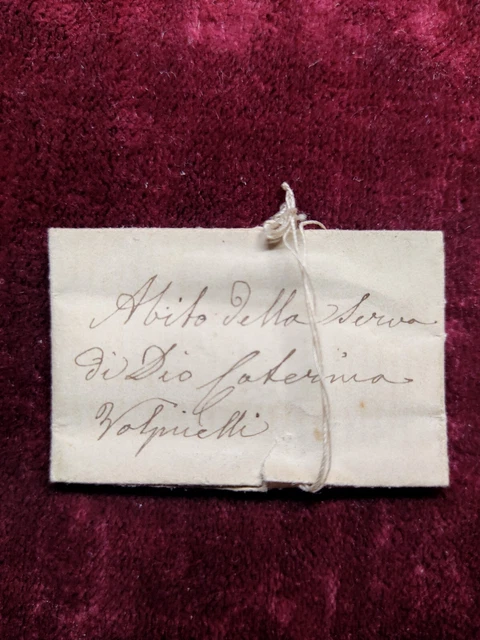 Abito della Serva
di Dio Caterina
Volpicelli